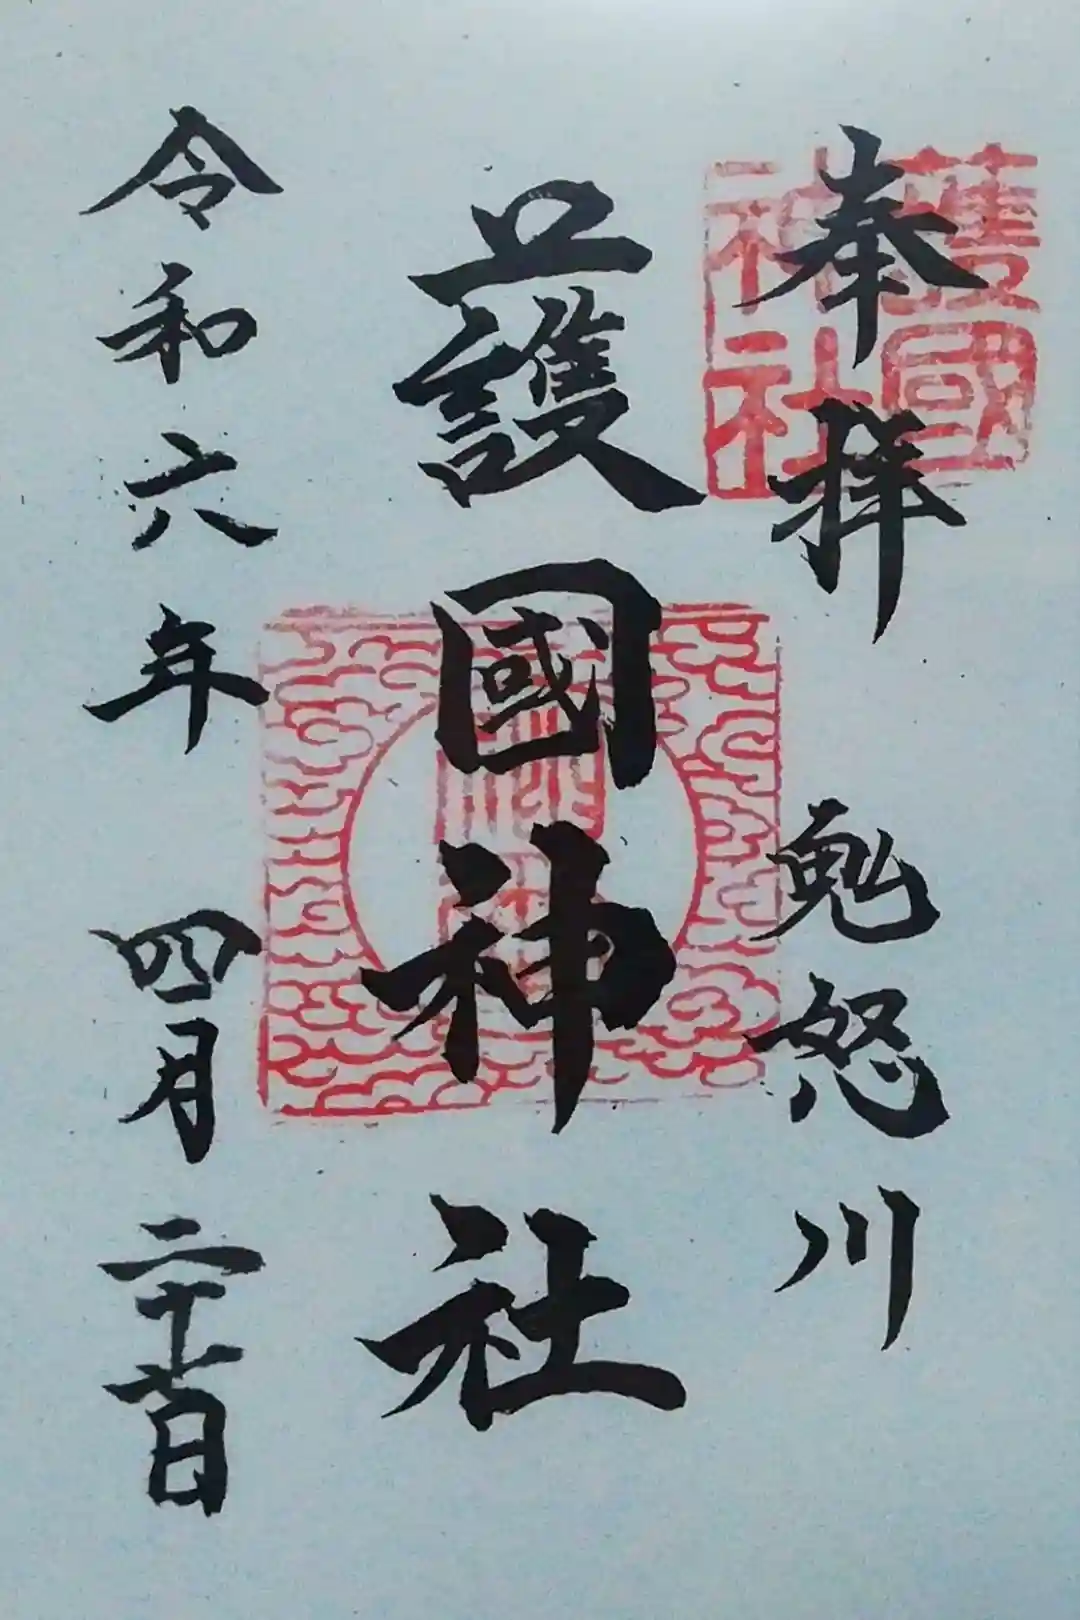 護國
神社
奉拝 鬼怒川
護國神社
令和六年 四月 日